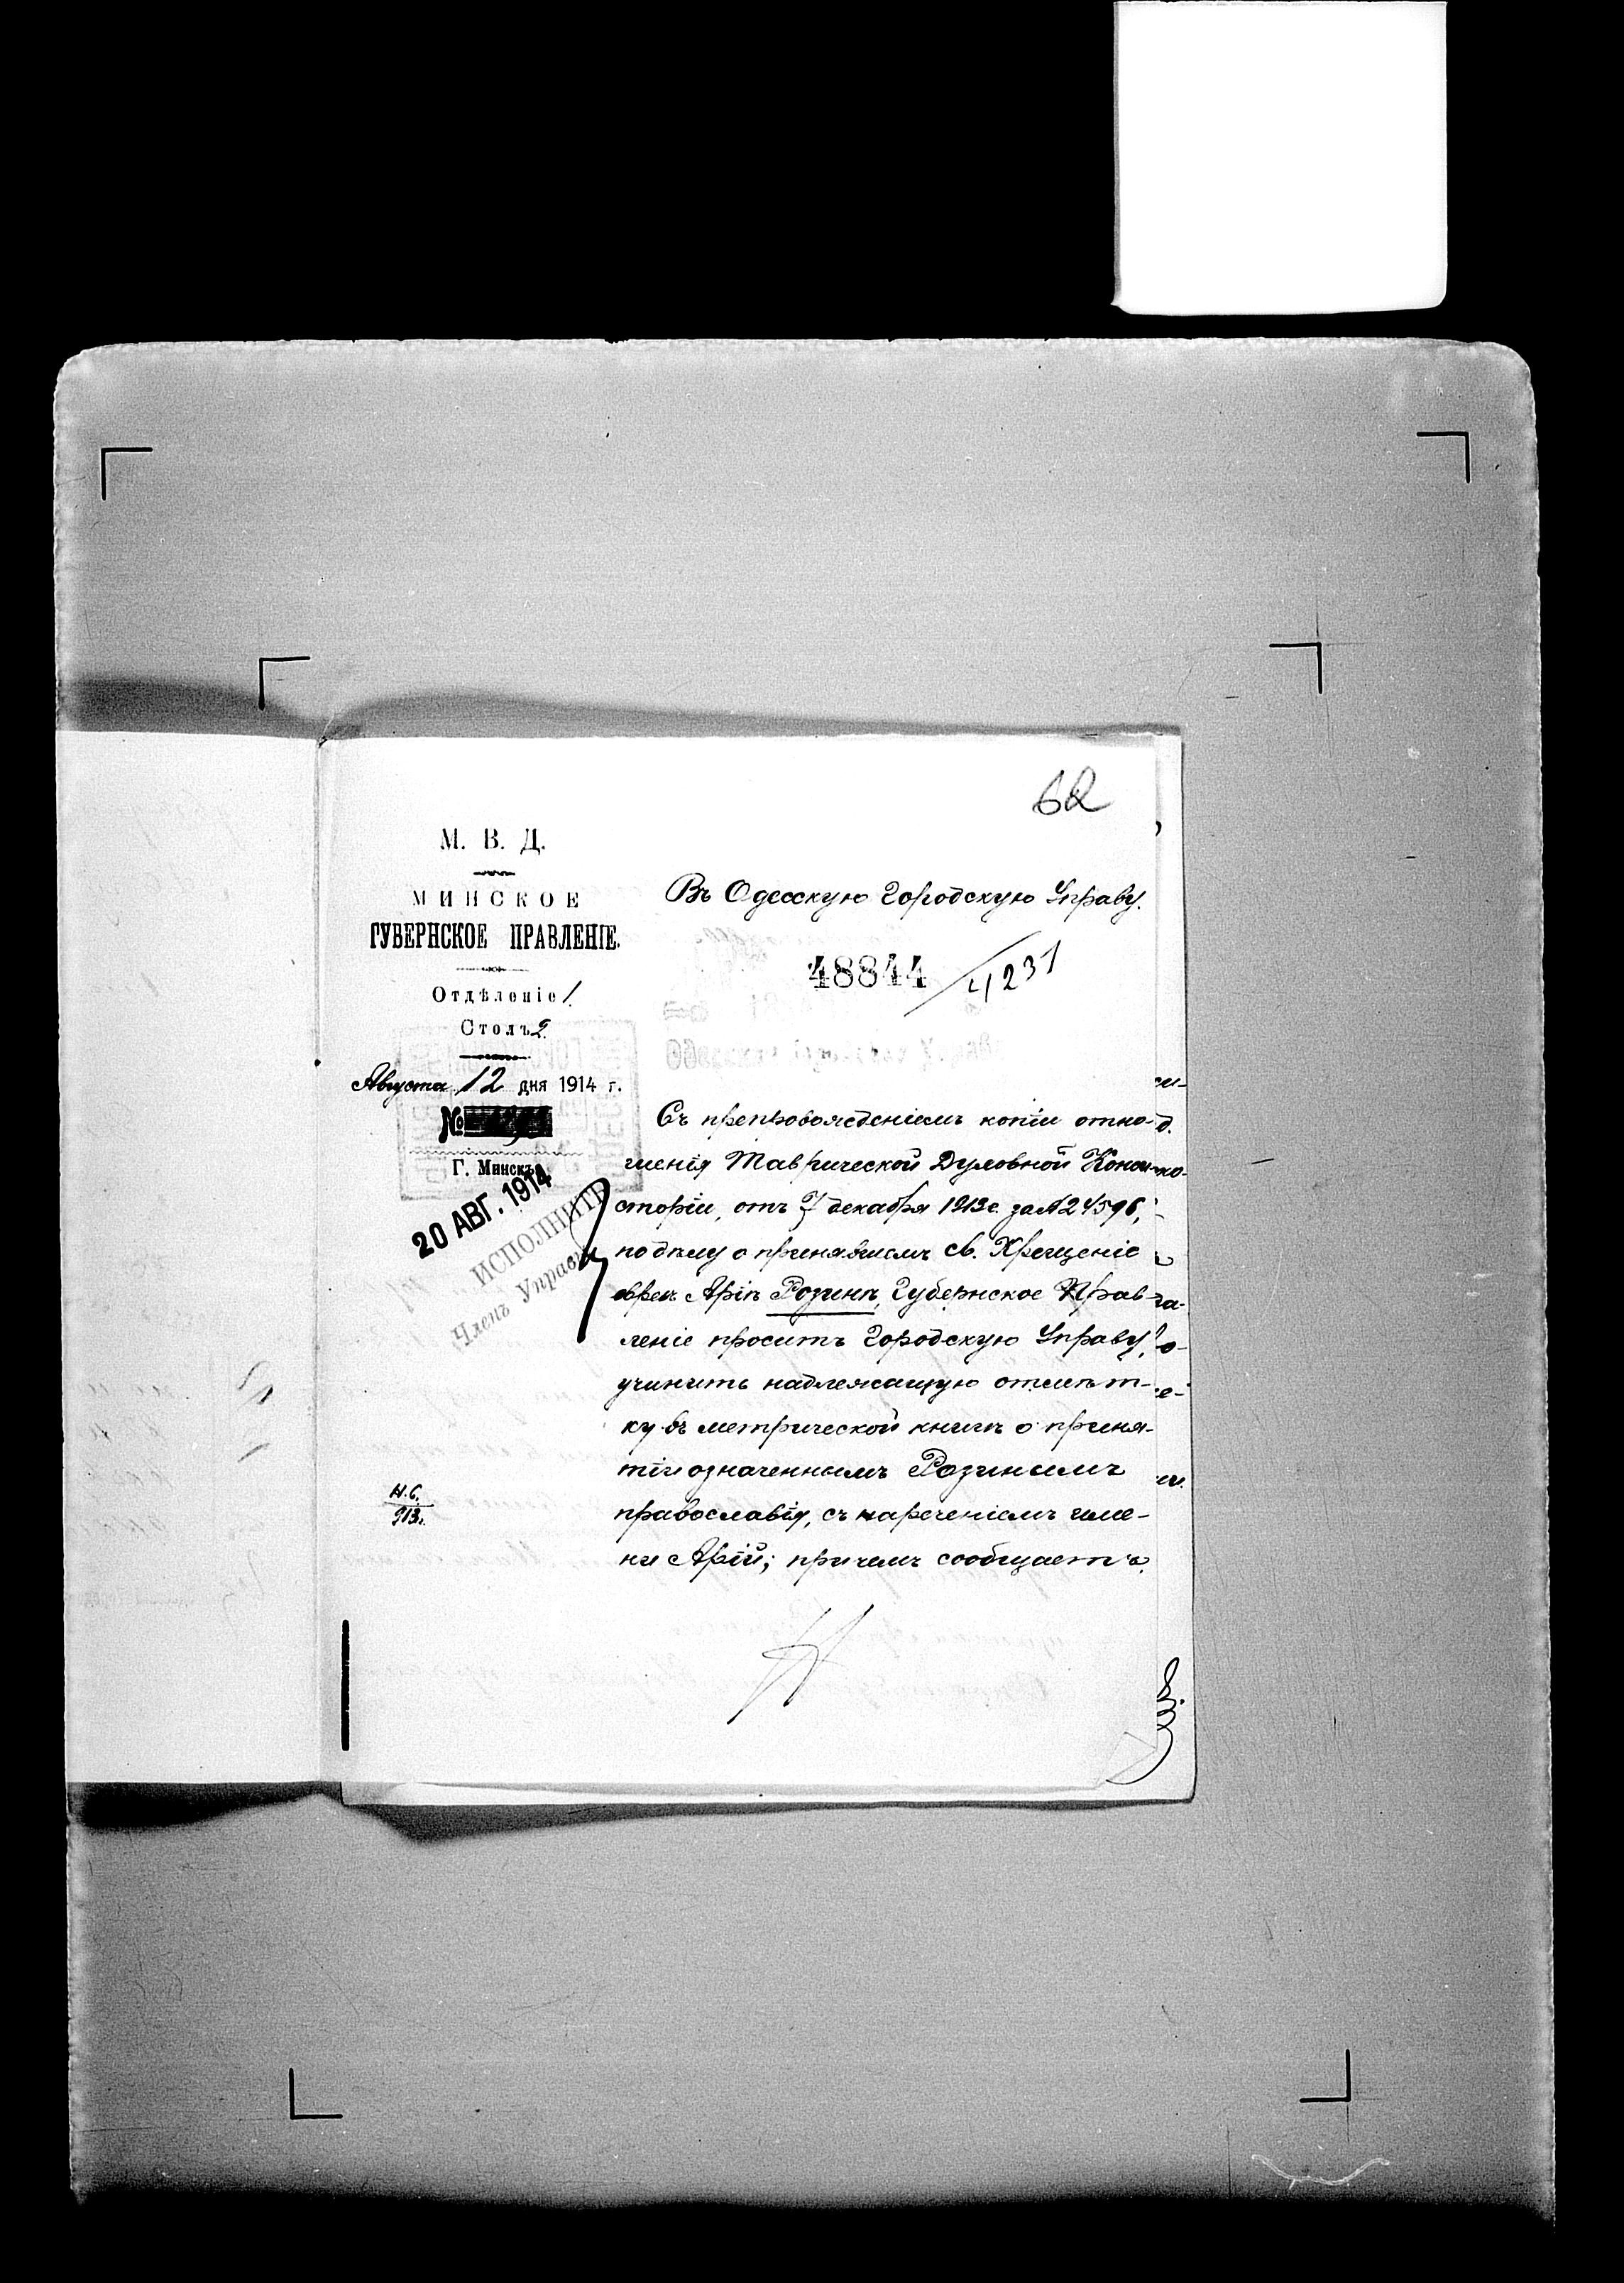 62
М. В. Д.
МИНСКОЕ
ГУБЕРНСКОЕ ПРАВЛЕНІЕ.
Отдѣленіе 1.
Столъ 2.
Августа 12 дня 1914 г.
№
Г. Минскъ.
20 АВГ. 1914
ИСПОЛНИТЬ
Членъ Управы
Въ Одесскую Городскую Управу.
48844 / 4231
Съ препровожденіемъ копіи отно-
шенія Таврической Духовной Конси-
сторіи, отъ 7 декабря 1913 г. за № 24596,
по дѣлу о принявшемъ св. Крещеніе
евреѣ Аріѣ Розинѣ, Губернское Прав-
леніе проситъ Городскую Управу
учинить надлежащую отмѣт-
ку въ метрической книгѣ о приня-
тіи означеннымъ Розинымъ
православія, съ нареченіемъ име-
ни Арій; причемъ сообщаетъ,
Н.С.
913.